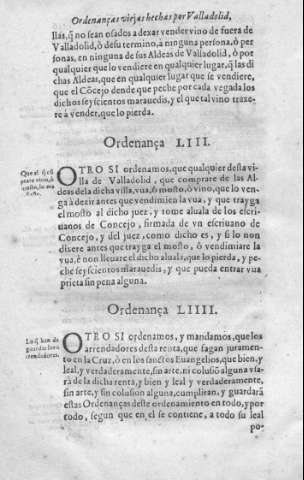 Ordenanças viejas hechas por Valladolid,
llas, q̃ no sean osados a dexar vender vino de fuera de
Valladolid, ò desu termino, à ninguna persona, ò per
sonas, en ninguna de sus Aldeas de Valladolid, ò por
qualquier que lo vendiere en qualquier lugar, q̃ las di
chas Aldeas, que en qualquier lugar que se vendiere,
que el Cõcejo dende que peche por cada vegada los
dichos seyscientos marauedis, y el que tal vino traxe-
re à vender, que lo pierda.
Ordenança LIII.
OTRO SI ordenamos, que qualquier desta vi-
lla de Valladolid, que comprare de las Al-
deas dela dicha villa, vua, ò mosto, ò vino, que lo ven
ga à dezir antes que vendimien la vua, y que trayga
el mosto al dicho juez, y tome aluala de los escri-
uanos de Concejo, firmada de vn escriuano de
Concejo, y del juez, como dicho es, y si lo non
dixere antes que trayga el mosto, ò vendimiare la
vua, è non lleuare el dicho aluala, que lo pierda, y pe-
che seyscientos marauedis, y que pueda entrar vua
prieta sin pena alguna.
Ordenança LIIII.
Lo q̃ han de
guardar los a
rrendadores.
OTRO SI ordenamos, y mandamos, que los
arrendadores desta renta, que fagan juramen-
to en la Cruz, ò en los sanctos Euangelios, que bien, y
leal, y verdaderamente, sin arte, ni colusiõ alguna vsa-
rà de la dicha renta, y bien y leal y verdaderamente,
sin arte, y sin colusion alguna, cumpliran, y guardarà
estas Ordenanças deste ordenamiento en todo, y por
todo, segun que en el se contiene, a todo su leal
po-